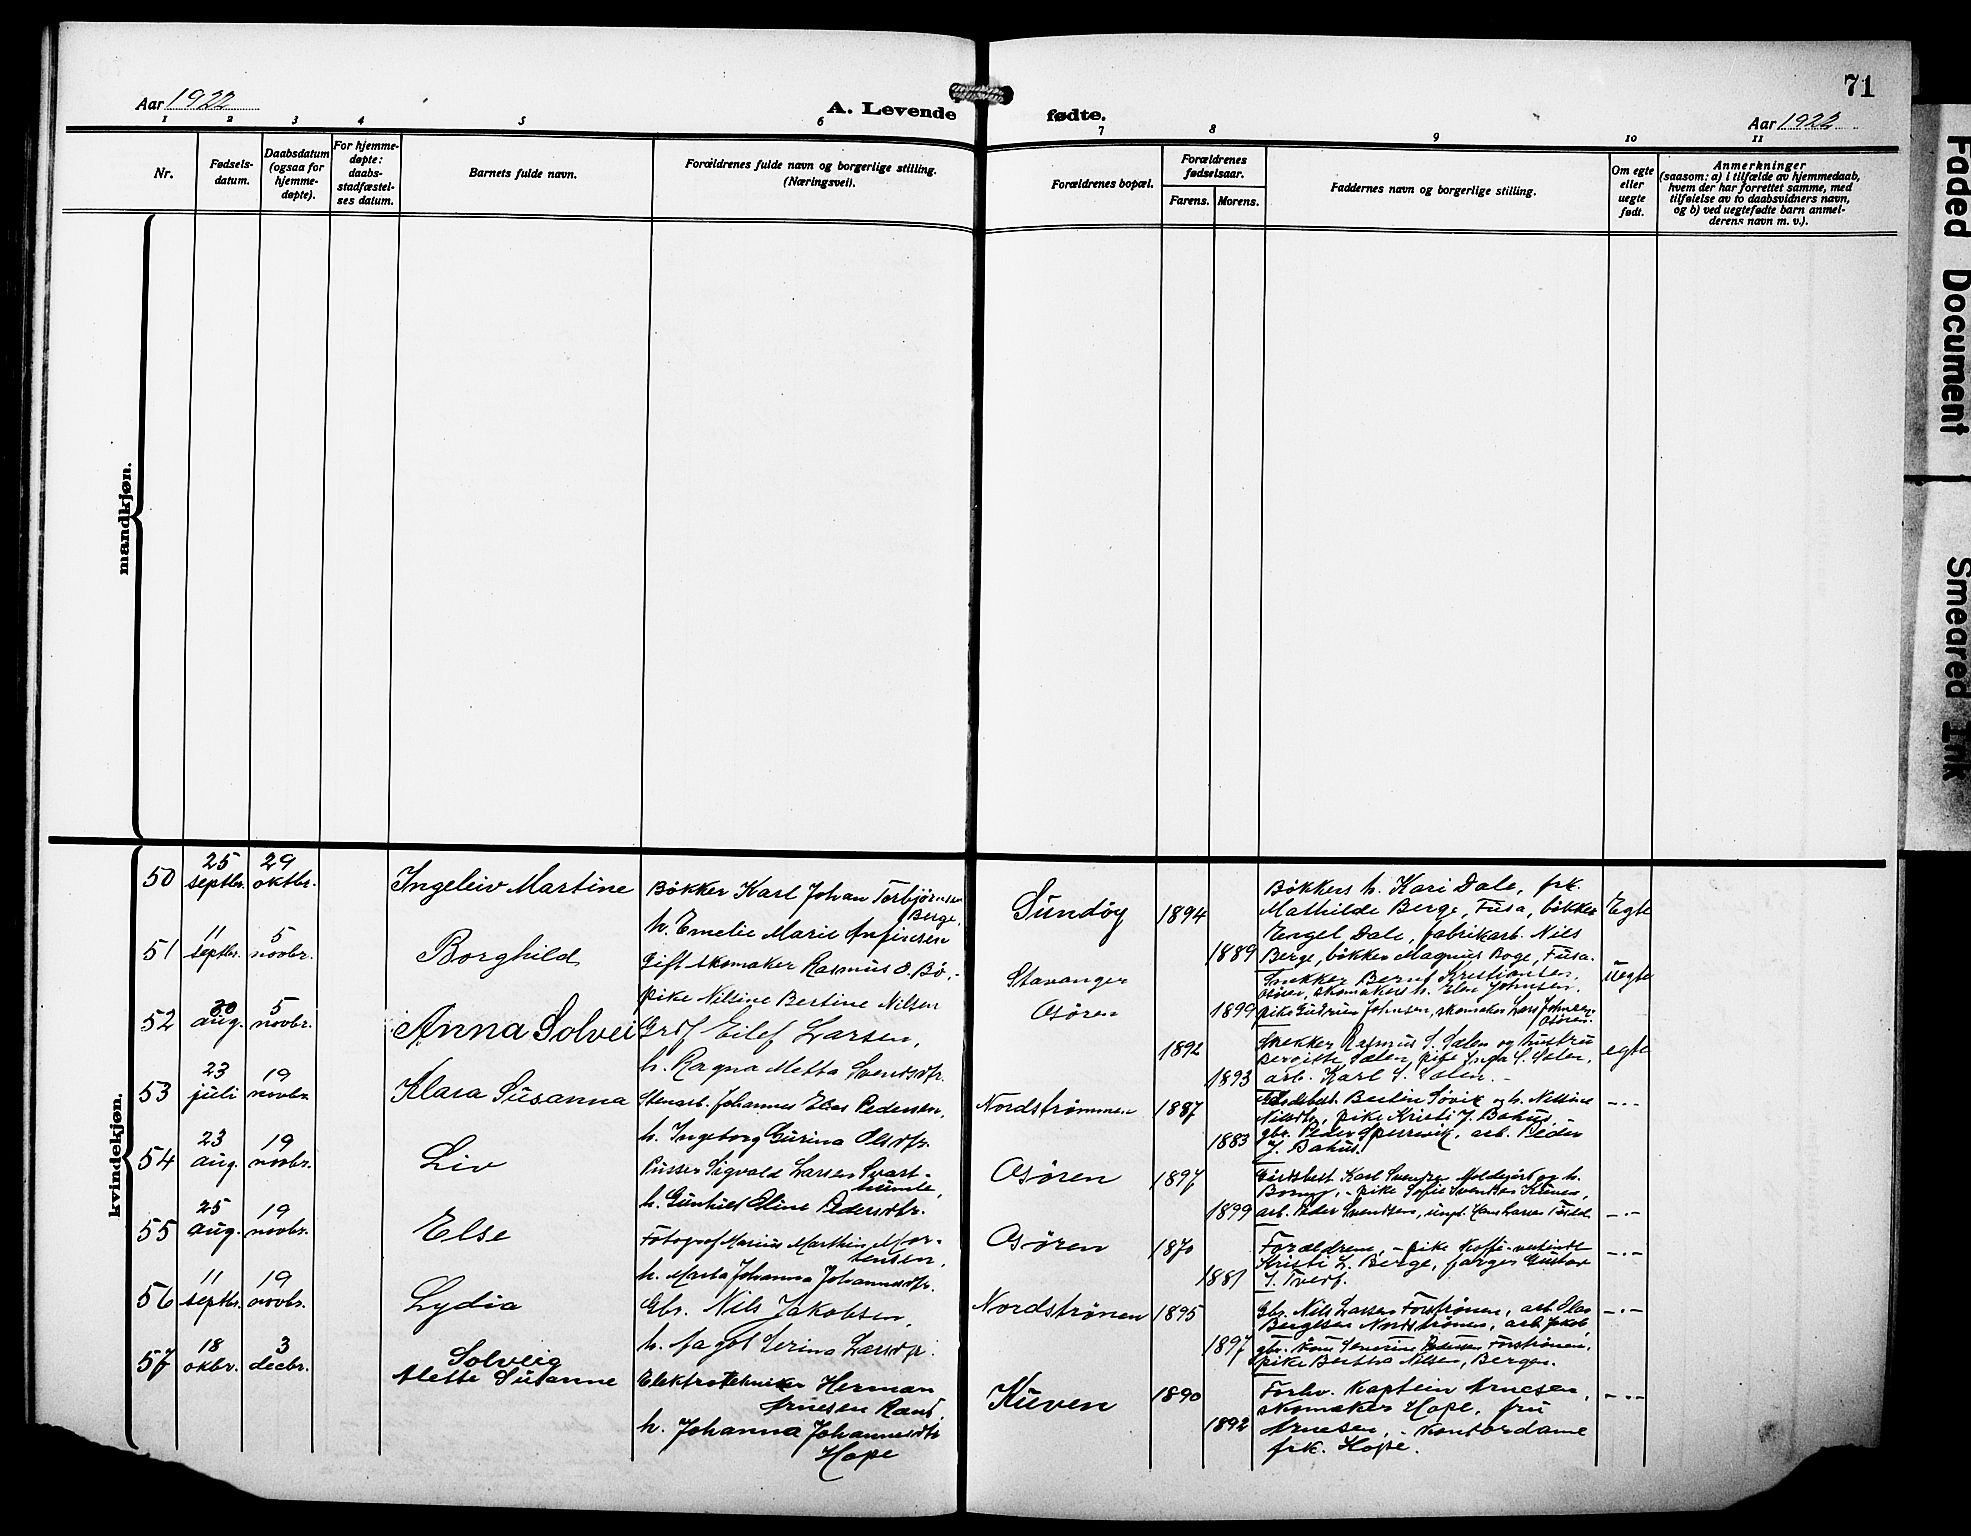 71
Aar 1922
A. Levende
fødte.
Aar 1922
1 2 3 4 5 6 7 8 9 10 11
Nr.
Fødsels-
datum.
Daabsdatum
(ogsaa for
hjemme-
døpte).
For hjemme-
døpte:
daabs-
stadfæstel-
ses datum.
Barnets fulde navn.
Forældrenes fulde navn og borgerlige stilling.
(Næringsvei).
Forældrenes bopæl.
Forældrenes
fødselsaar.
Farens. Morens.
Faddernes navn og borgerlige stilling.
Om egte
eller
uegte
født.
Anmerkninger
(saasom: a) i tilfælde av hjemmedaab,
hvem der har forrettet samme, med
tilføielse av to daabsvidners navn,
og b) ved uegtefødte barn anmel-
derens navn m. v.).
mandkjøn.
kvindekjøn.
50
25
septbr.
29
oktbr.
Ingeleiv Martine
Bøkker Karl Johan Torbjørnsen
Berge,
h. Emelie Marie Anfinsen
Sundøy
1894
1889
Bøkkers h. Kari Dale, frk.
Mathilde Berge, Fusa, bøkker
Engel Dale, fabrikarb. Nils
Berge, bøkker Magnus Boge, Fusa.
Egte
51
11
septbr.
5
novbr.
Borghild
Gift skomaker Rasmus O. Bø,
pike Nilsine Bertine Nilsen
Stavanger
Osøren
1899
Snekker Bernt Kristiansen,
Osøren, skomakers h. Elen Johnsen,
pike Gudrun Johnsen, skomaker Lars Johnsen,
Osøren.
Uegte
52
30
aug.
5
novbr.
Anna Solvei
Grdf. Eilef Larsen,
h. Ragna Metta Svendsdtr.
1892
1893
Snekker Rasmus S. Sælen og hustru
Bergitte Sælen, pike Inga S. Sælen,
arb. Karl S. Sælen.
egte
53
23
juli
19
novbr.
Klara Susanna
Stenarb. Johannes Elias Pedersen,
h. Ingeborg Gurina Olsdtr.
Nordstrømmen
1887
1883
Søvik og h. Nettine
Nilsdtr, pike Kristi J. Bahus,
gbr. Peder Sperrevik, arb. Peder
J. Bahus.
-"-
54
23
aug.
19
novbr.
Liv
Pusser Sigvald Larsen Svart-
humle,
h. Gunhild Eline Pedersdtr.
Osøren
1897
1899
Gårdsbest. Karl Svendsen Moldegård og h.
Borny, - pike Sofie Svendsen Kuven,
arb. Peder Svendsen, ungk. Hans Larsen
-"-
55
25
aug.
19
novbr.
Else
Fotograf Marius Marthin Mor-
tensen,
h. Marta Johanna Johannesdtr.
Osøren
1870
1881
Forældrene, - pike
Kristi L. Berge, farger Gustav
J. Tveit.
-"-
56
11
septbr.
19
novbr.
Lydia
Gbr. Nils Jakobsen,
h. Magot Serina Larsdtr.
Nordstrønen
1895
1897
Gbr. Nils Larsen Forstrønen, arb. Olav
Bergtsen Nordstrønen, arb. Jakob
gbr. Hans Severin Petersen Forstrønen,
pike Bertha Nilsen, Bergen.
-"-
57
18
okbr.
3
decbr.
Solveig
Alette Susanne
Elektrotekniker Herman
Arnesen Rand,
h. Johanna Johannesdtr
Hope
Kuven
1890
1892
Forhv. Kaptein Arnesen,
skomaker Hope, fru
Arnesen, - Kontordame
frk. Hope.
-"-
Faded Document
Smeared Ink